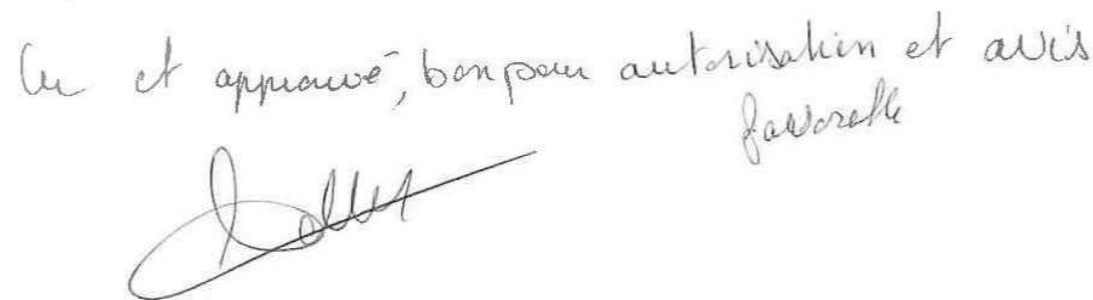 Lu et approuvé, bon pour autorisation et avis
favorable